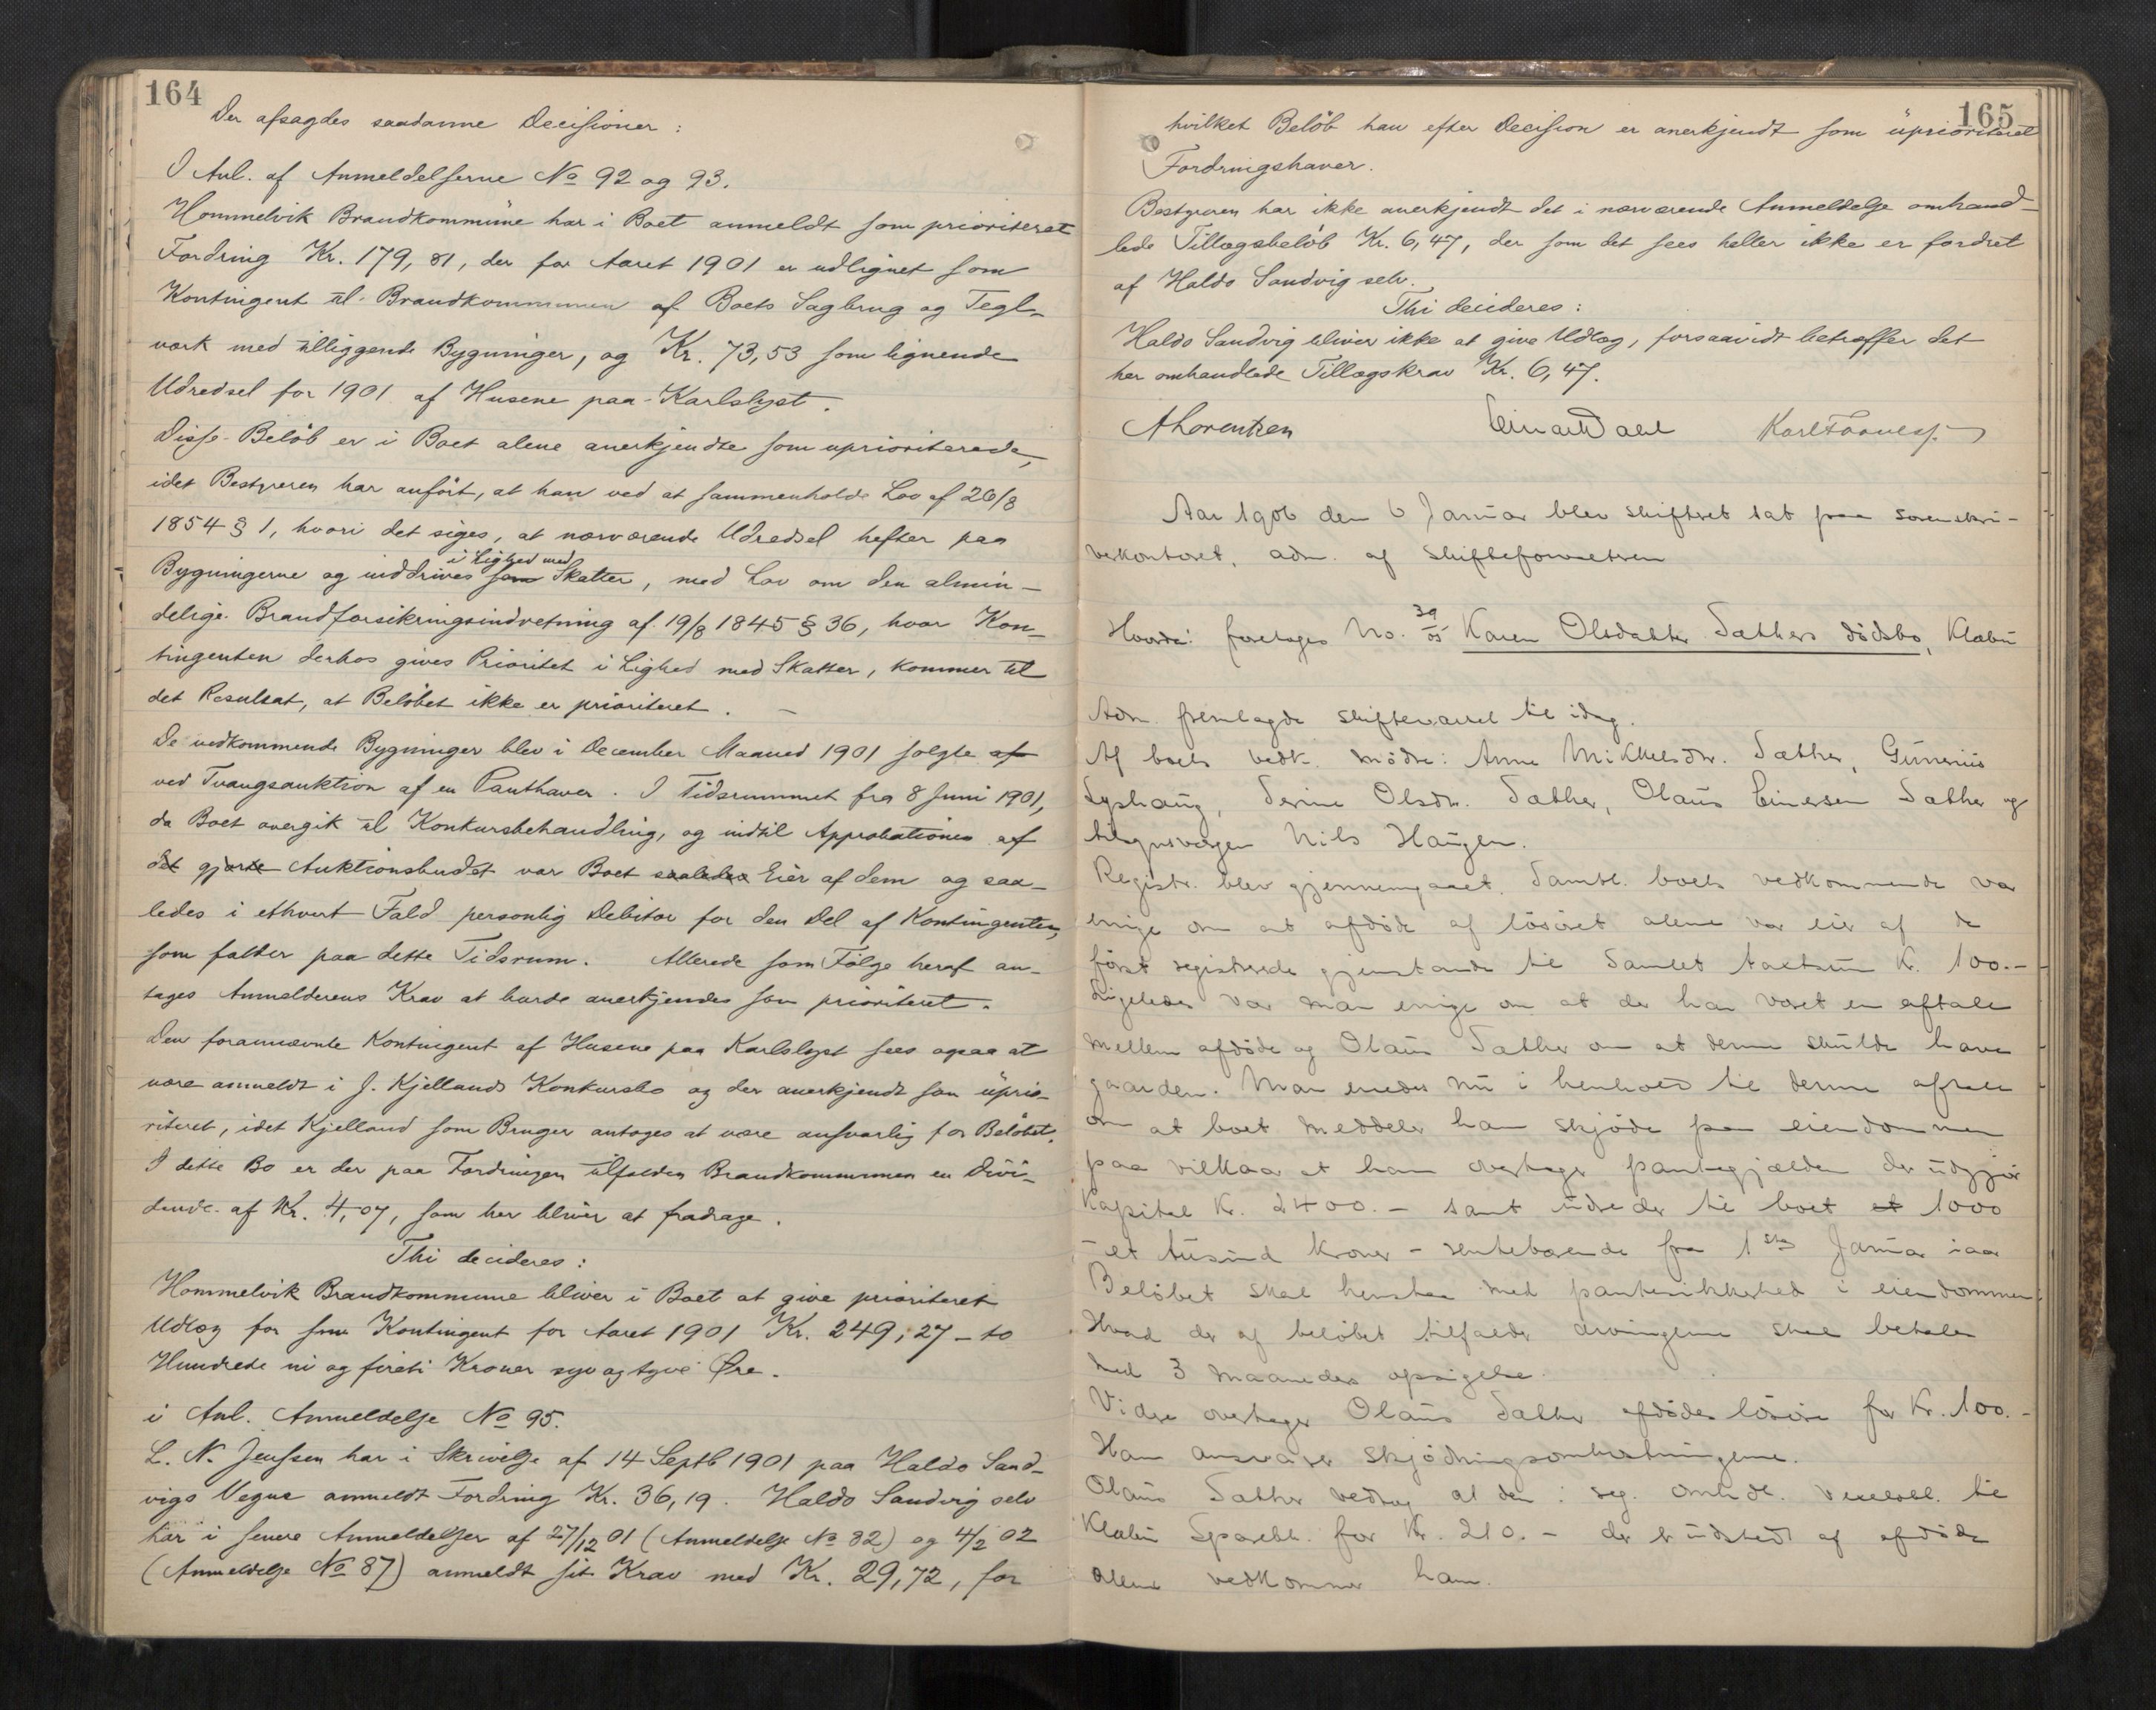 164
Der afsagdes saadanne Decisioner:
I Anl. af Anmeldelserne No 92 og 93.
Hommelvik Brandkommune har i Boet anmeldt som prioriteret
Fordring Kr. 179,81, der for Aaret 1901 er udlignet som
Kontingent til Brandkommunen af Boets Sagbrug og Tegl-
værk med tilliggende Bygninger, og Kr. 73,53 som lignende
Udredsel for 1901 af Husene paa Karlslyst.
Disse Beløb er i Boet alene anerkjendte som uprioriterede,
idet Bestyreren har anført, at han ved at sammenholde Lov af 26/8
1854 § 1, hvori det siges, at nærværende Udredsel hefter paa
i Lighed med
Bygningerne og inddrives som Skatter, med Lov om den almin-
delige Brandforsikringsindretning af 19/8 1845 § 36, hvor Kon-
tingenten derhos gives Prioritet i Lighed med Skatter, kommer til
det Resultat, at Beløbet ikke er prioriteret. -
De vedkommende Bygninger blev i December Maaned 1901 solgte af
ved Tvangsauktion af en Panthaver. I Tidsrummet fra 8 Juni 1901,
da Boet overgik til Konkursbehandling, og indtil Approbationen af
det gjorte Auktionsbudet var Boet saaledes Eier af dem og saa-
ledes i ethvert Fald personlig Debitor for den Del af Kontingenten,
som falder paa dette Tidsrum. Allerede som Følge heraf an-
tages Anmelderens Krav at burde anerkjendes som prioriteret.
Den forannævnte Kontingent af Husene paa Karlslyst sees ogsaa at
være anmeldt i J. Kjellands Konkursbo og der anerkjendt som uprio-
riteret, idet Kjelland som Bruger antages at være ansvarlig for Beløbet.
I dette Bo er der paa Fordringen tilfalden Brandkommunen en Divi-
dende af Kr. 4,07, som her bliver at fradrage.
Thi decideres:
Hommelvik Brandkommune bliver i Boet at give prioriteret
Udlæg for sin Kontingent for Aaret 1901 Kr. 249,27 - to
Hundrede ni og firti Kroner syv og tyve Øre.
i Anl. Anmeldelse No 95.
L. N. Jenssen har i Skrivelse af 14 Septb 1901 paa Haldo Sand-
vigs Vegne anmeldt Fordring Kr. 36,19. Haldo Sandvig selv
har i senere Anmeldelser af 27/12 01 (Anmeldelse No 82) og 4/2 02
(Anmeldelse No 87) anmeldt sit Krav med Kr. 29,72, for
165
hvilket Beløb han efter Decision er anerkjendt som uprioriteret
Fordringshaver.
Bestyreren har ikke anerkjendt det i nærværende Anmeldelse omhand-
lede Tillægsbeløb Kr. 6,47, der som det sees heller ikke er fordret
af Haldo Sandvig selv.
Thi decideres:
Haldo Sandvig bliver ikke at give Udlæg, forsaavidt betræffer det
her omhandlede Tillægskrav Kr. 6,47.
A Lorentzen Einar Dahl Karl
Aar 1906 den 6 Januar blev skifteret sat paa sorenskri-
verkontoret, adm. af skifteforvalteren
Hvorda: foretoges No. 39/05 Karen Olsdatter Sæthers dødsbo, Klæbu
Adm. fremlagde skiftevarsel til idag.
Af boets vedk. mødte: Anne Mikkelsdtr. Sæther, Gunerius
Lyshaug, Serine Olsdtr. Sæther, Olaus Einersen Sæther og
tilsynsværgen Nils Haugen.
Registr. blev gjennemgaaet. Samtl. boets vedkommende var
enige om at afdøde af løsøret alene var eier af de
først registrerede gjenstande til samlet taxtsum Kr. 100.-
Ligeledes var man enige om at der har været en aftale
mellem afdøde og Olaus Sæther om at denne skulde have
gaarden. Man enedes nu i henhold til denne aftale
om at boet meddeler ham skjøde paa eiendommen
paa vilkaar at han overtager pantegjælden der udgjør
Kapital Kr. 2400.- samt udreder til boet et 1000
- et tusind kroner - rentebærende fra 1ste Januar iaar
Beløbet skal henstaa med pantesikkerhed i eiendommen.
Hvad der af beløbet tilfalder arvingerne skal betales
med 3 maaneders opsigelse.
Videre overtager Olaus Sæther afdødes løsøre for Kr. 100.-
Han ansvarer skjødningsomkostningerne.
Olaus Sæther vedtog at den i reg. omhdl. vexelobl. til
Klæbu Sparebk. for Kr. 210.- der er udstedt af afdøde
alene vedkommer ham.